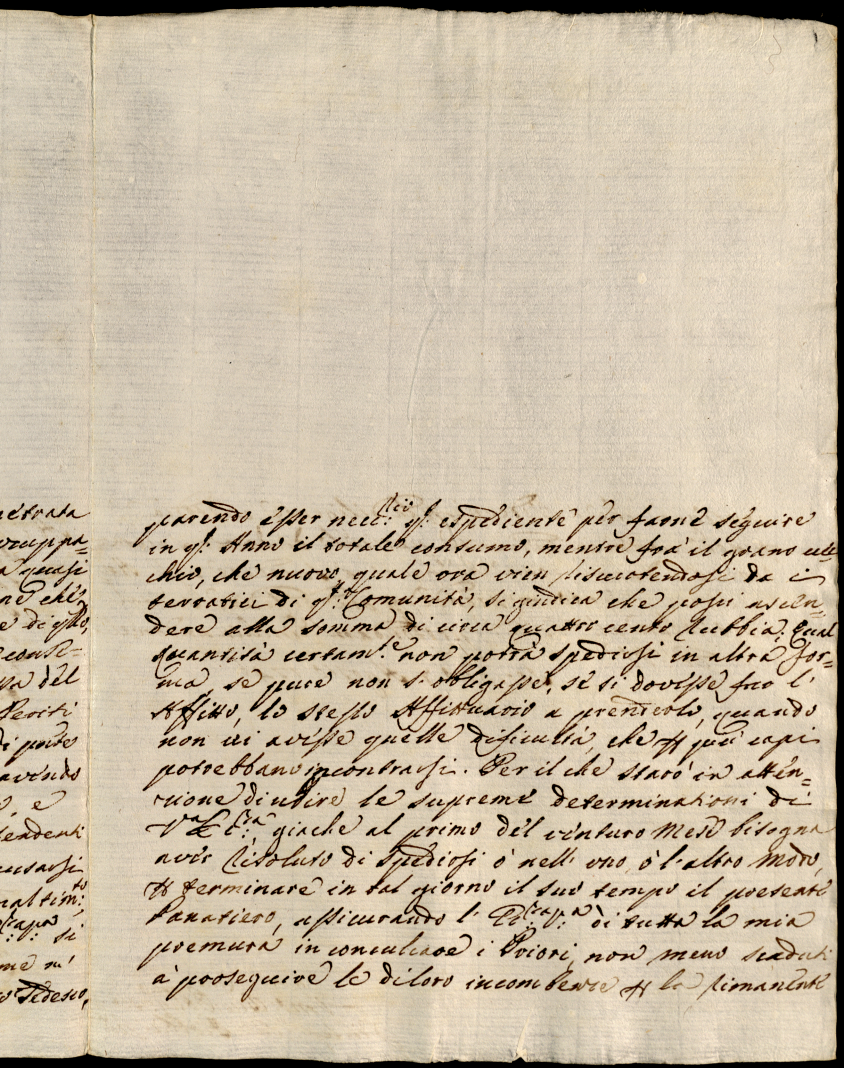 netrata
vruppa=
a quasi
ne ch'è
e di qsto,
const=
pa del
Periti
di porto
avendo
o, e
sendenti
cusarsi
naltim:to
si
me n'
Tedesco,
parendo esser necc:rio qs: espediente per farne seguire
in qs: Anno il totale consumo, mentre frà il grano vec
chio, che nuovo, quale ora vien riscuotendosi da i
terratici di qs:ta Comunità, si giudica che possi ascen=
dere alla somma di circa quattro cento rubbia; qual
quantità certam:te non potrà spedirsi in altra for=
ma, se pure non s'obligasse, se si dovesse far l'
Affitto, lo stesso Affittuario a prenderlo, quando
non vi avesse quelle dificultà, che più capi
potrebbano incontrarsi. Per il che starò in atten=
zione di udire le supreme determinationi di
V:ra Ecc:za giache al primo del venturo Mese bisogna
aver risoluto di spedirsi ò nell'uno, ò l'altro modo,
terminare in tal giorno il suo tempo il presente
Panatiero, assicurando l' di tutta la mia
premura in conculcare i Priori, non meno scaduti
à proseguire le di loro incombenze la rimanente